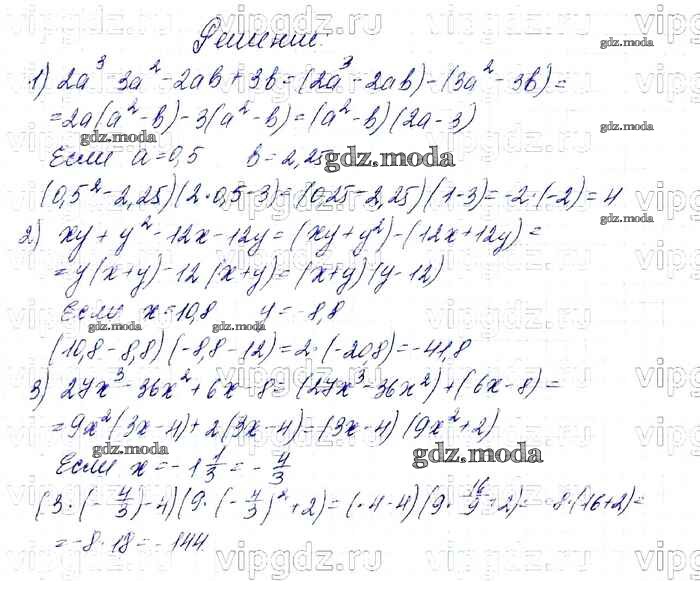 Решение.
1) 2a³ - 3a² - 2ab + 3b = (2a³ - 2ab) - (3a² - 3b) =
= 2a(a² - b) - 3(a² - b) = (a² - b)(2a - 3)
Если a = 0,5 b = 2,25
(0,5² - 2,25)(2·0,5 - 3) = (0,25 - 2,25)(1 - 3) = -2·(-2) = 4
2) xy + y² - 12x - 12y = (xy + y²) - (12x + 12y) =
= y(x + y) - 12(x + y) = (x + y)(y - 12)
Если x = 10,8 y = -8,8
(10,8 - 8,8)(-8,8 - 12) = 2·(-20,8) = -41,8
3) 27x³ - 36x² + 6x - 8 = (27x³ - 36x²) + (6x - 8) =
= 9x²(3x - 4) + 2(3x - 4) = (3x - 4)(9x² + 2)
Если x = -1 1/3 = - 4/3
(3·(- 4/3) - 4)(9·(- 4/3)² + 2) = (-4 - 4)(9· 16/9 + 2) = -8·(16 + 2) =
= -8·18 = -144
vipgdz.ru
gdz.moda